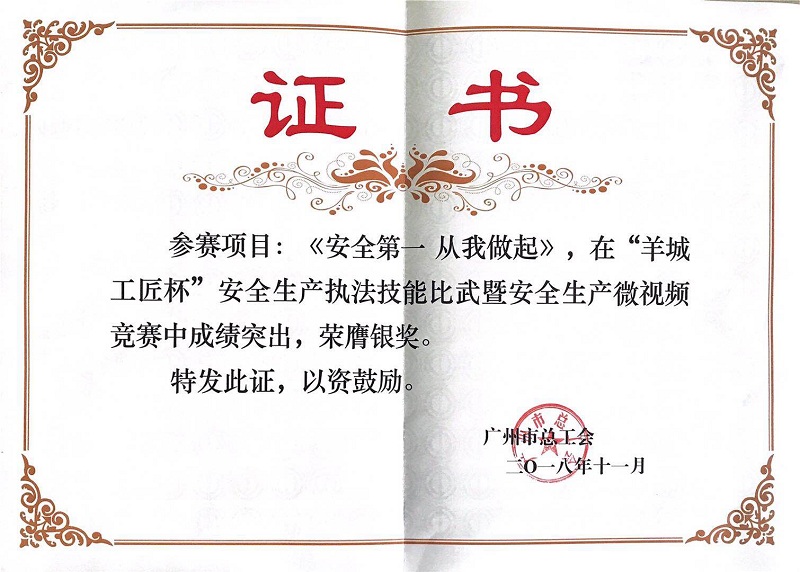 证 书
参赛项目：《安全第一 从我做起》，在“羊城
工匠杯”安全生产执法技能比武暨安全生产微视频
竞赛中成绩突出，荣膺银奖。
特发此证，以资鼓励。
广州市总工会
二〇一八年十一月